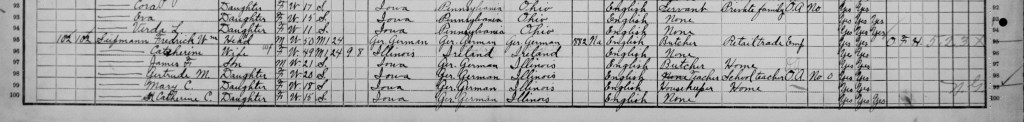 92 Cora Daughter F W 17 S. Iowa Pennsylvania Ohio English Servant Private family O.A. No. Yes Yes
93 Eva Daughter F W 15 S. Iowa Pennsylvania Ohio English None Yes Yes Yes
94 Verda L. Daughter F W 11 S. Iowa Pennsylvania Ohio English None Yes Yes Yes
95 102 102 Fredrick Wm Head M W 50 M1 24 Ger. German Ger. German Ger. German 1882 Na English Butcher Retail trade Emp Yes Yes
96 Catherine Wife F W 49 M1 24 9 8 Illinois Ireland Ireland English None Yes Yes
97 James F. Son M W 21 S. Iowa Ger. German Illinois English Butcher Home Yes Yes
98 Gertrude M. Daughter F W 20 S. Iowa Ger. German Illinois English Teacher School teacher O.A. No. 0 Yes Yes
99 Mary C. Daughter F W 18 S. Iowa Ger. German Illinois English Housekeeper Home Yes Yes
100 Catherine C. Daughter F W 15 S. Iowa Ger. German Illinois English None Yes Yes Yes